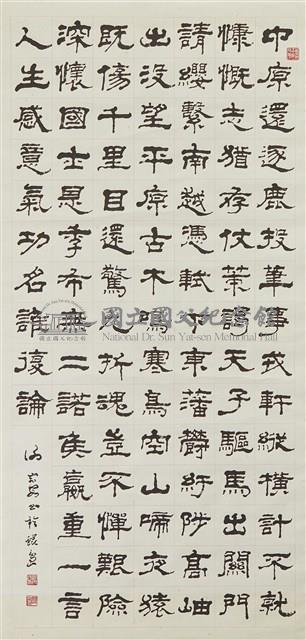 中原還逐鹿投筆事戎軒縱橫計不就
慷慨志猶存仗策謁天子驅馬出關門
請纓繫南越憑軾下東藩鬱紆陟高岫
出沒望平原古木鳴寒鳥空山啼夜猿
既傷千里目還驚九折魂豈不憚艱險
深懷國士恩季布無二諾侯嬴重一言
人生感意氣功名誰復論
國立國父紀念館
National Dr. Sun Yat-sen Memorial Hall